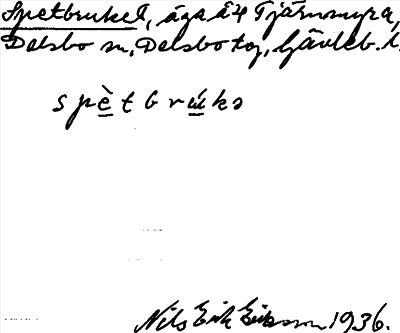 Spetbruket, äga å 4 Tjärnmyra,
Delsbo sn, Delsbo tg, Gävleb. l.
spètbrúks
Nils Erik Eriksson 1936.